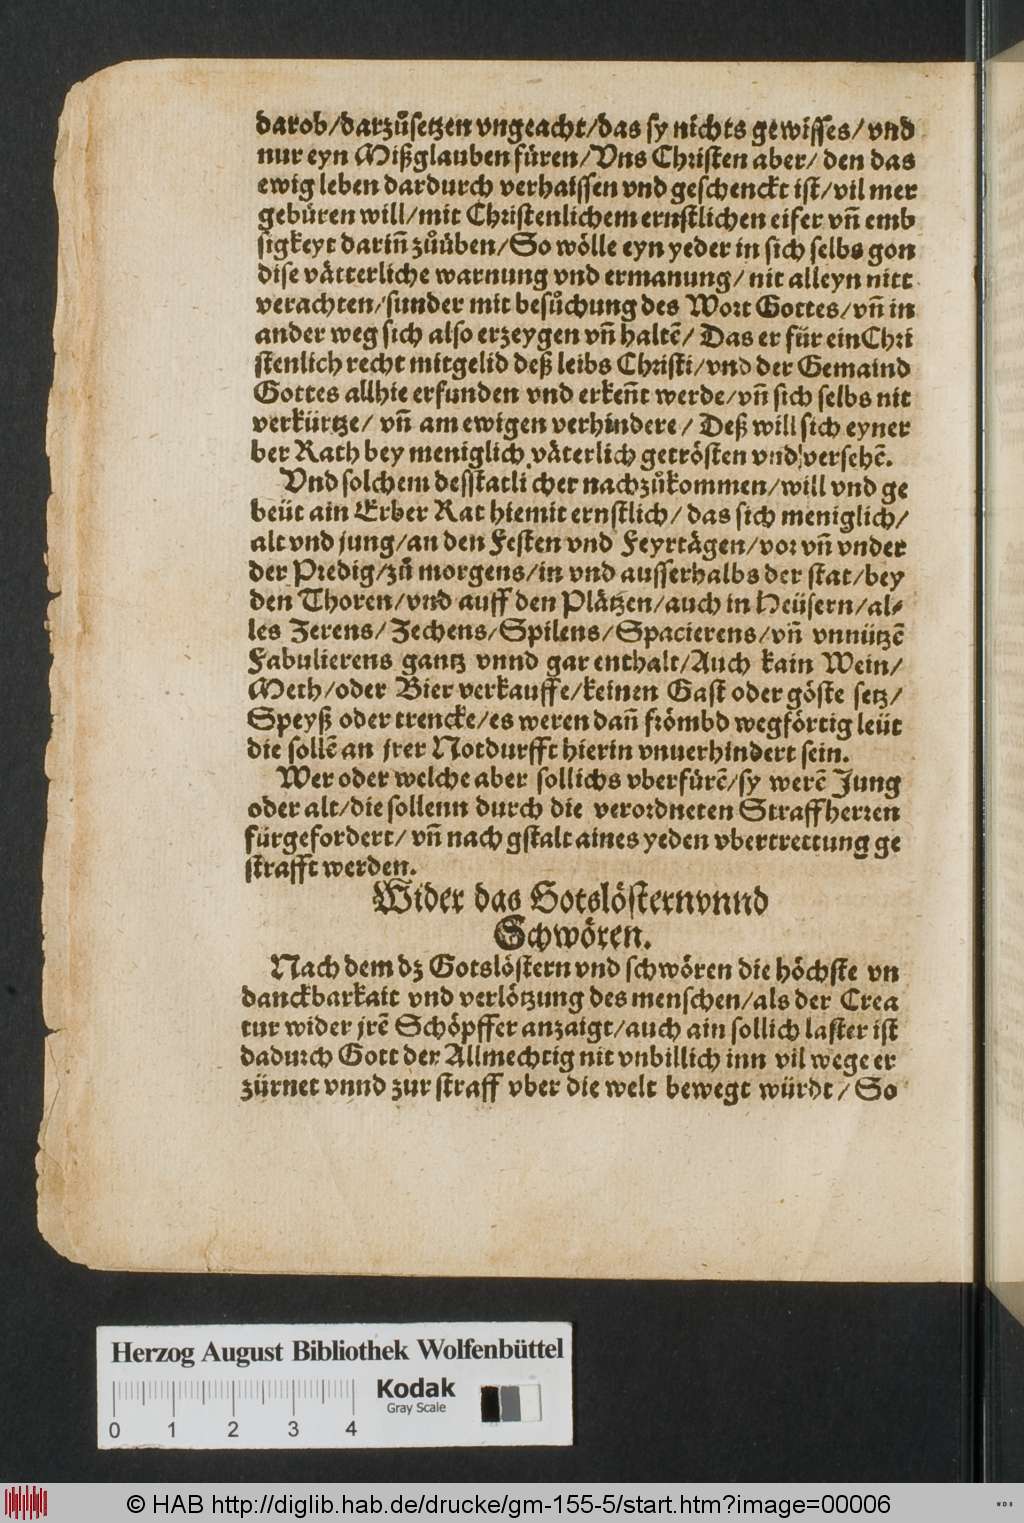 darob/darzuͦsetzen vngeacht/das sy nichts gewisses/ vnd
nur eyn Mißglauben füren/Vns Christen aber/ den das
ewig leben dardurch verhaissen vnd geschenckt ist/vil mer
gebüren will/mit Christenlichem ernstlichen eifer vn̄ emb
sigkeyt darin̄ zuͦüben/So wölle eyn yeder in sich selbs gon
dise vätterliche warnung vnd ermanung/ nit alleyn nitt
verachten/sunder mit besuͦchung des Wort Gottes/vn̄ in
ander weg sich also erzeygen vn̄ haltē/ Das er für ein Chri
stenlich recht mitgelid deß leibs Christi/vnd der Gemaind
Gottes allhie erfunden vnd erken̄t werde/vn̄ sich selbs nit
verkürtze/ vn̄ am ewigen verhindere/ Deß will sich eyner
ber Rath bey meniglich väterlich getrösten vnd versehē.
Vnd solchem desstatlicher nachzuͦkommen/will vnd ge
beüt ain Erber Rat hiemit ernstlich/ das sich meniglich/
alt vnd jung/an den Festen vnd Feyrtägen/vor vn̄ vnder
der Predig/zuͦ morgens/in vnd ausserhalbs der stat/bey
den Thoren/vnd auff den Plätzen/auch in Heüsern/al⸗
les Zerens/Zechens/Spilens/Spacierens/vn̄ vnnützē
Fabulierens gantz vnnd gar enthalt/Auch kain Wein/
Meth/oder Bier verkauffe/keinen Gast oder göste setz/
Speyß oder trencke/es weren dan̄ frömbd wegförtig leüt
die sollē an jrer Notdurfft hierin vnuerhindert sein.
Wer oder welche aber sollichs vberfürē/sy werē Jung
oder alt/die sollenn durch die verordneten Straffherren
fürgefordert/ vn̄ nach gstalt aines yeden vbertrettung ge
strafft werden.
Wider das Gotslösternvnnd
Schwören.
Nach dem dz Gotslöstern vnd schwören die höchste vn
danckbarkait vnd verlötzung des menschen/als der Crea
tur wider jrē Schöpffer anzaigt/auch ain sollich laster ist
dadurch Gott der Allmechtig nit vnbillich inn vil wege er
zürnet vnnd zur straff vber die welt bewegt würdt/ So
Herzog August Bibliothek Wolfenbüttel
Kodak
Gray Scale
0 1 2 3 4
© HAB http://diglib.hab.de/drucke/gm-155-5/start.htm?image=00006